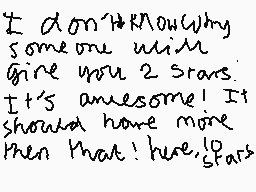 I don't know why
someone will
give you 2 stars.
It's awesome! It
should have more
then that! here, 10
stars